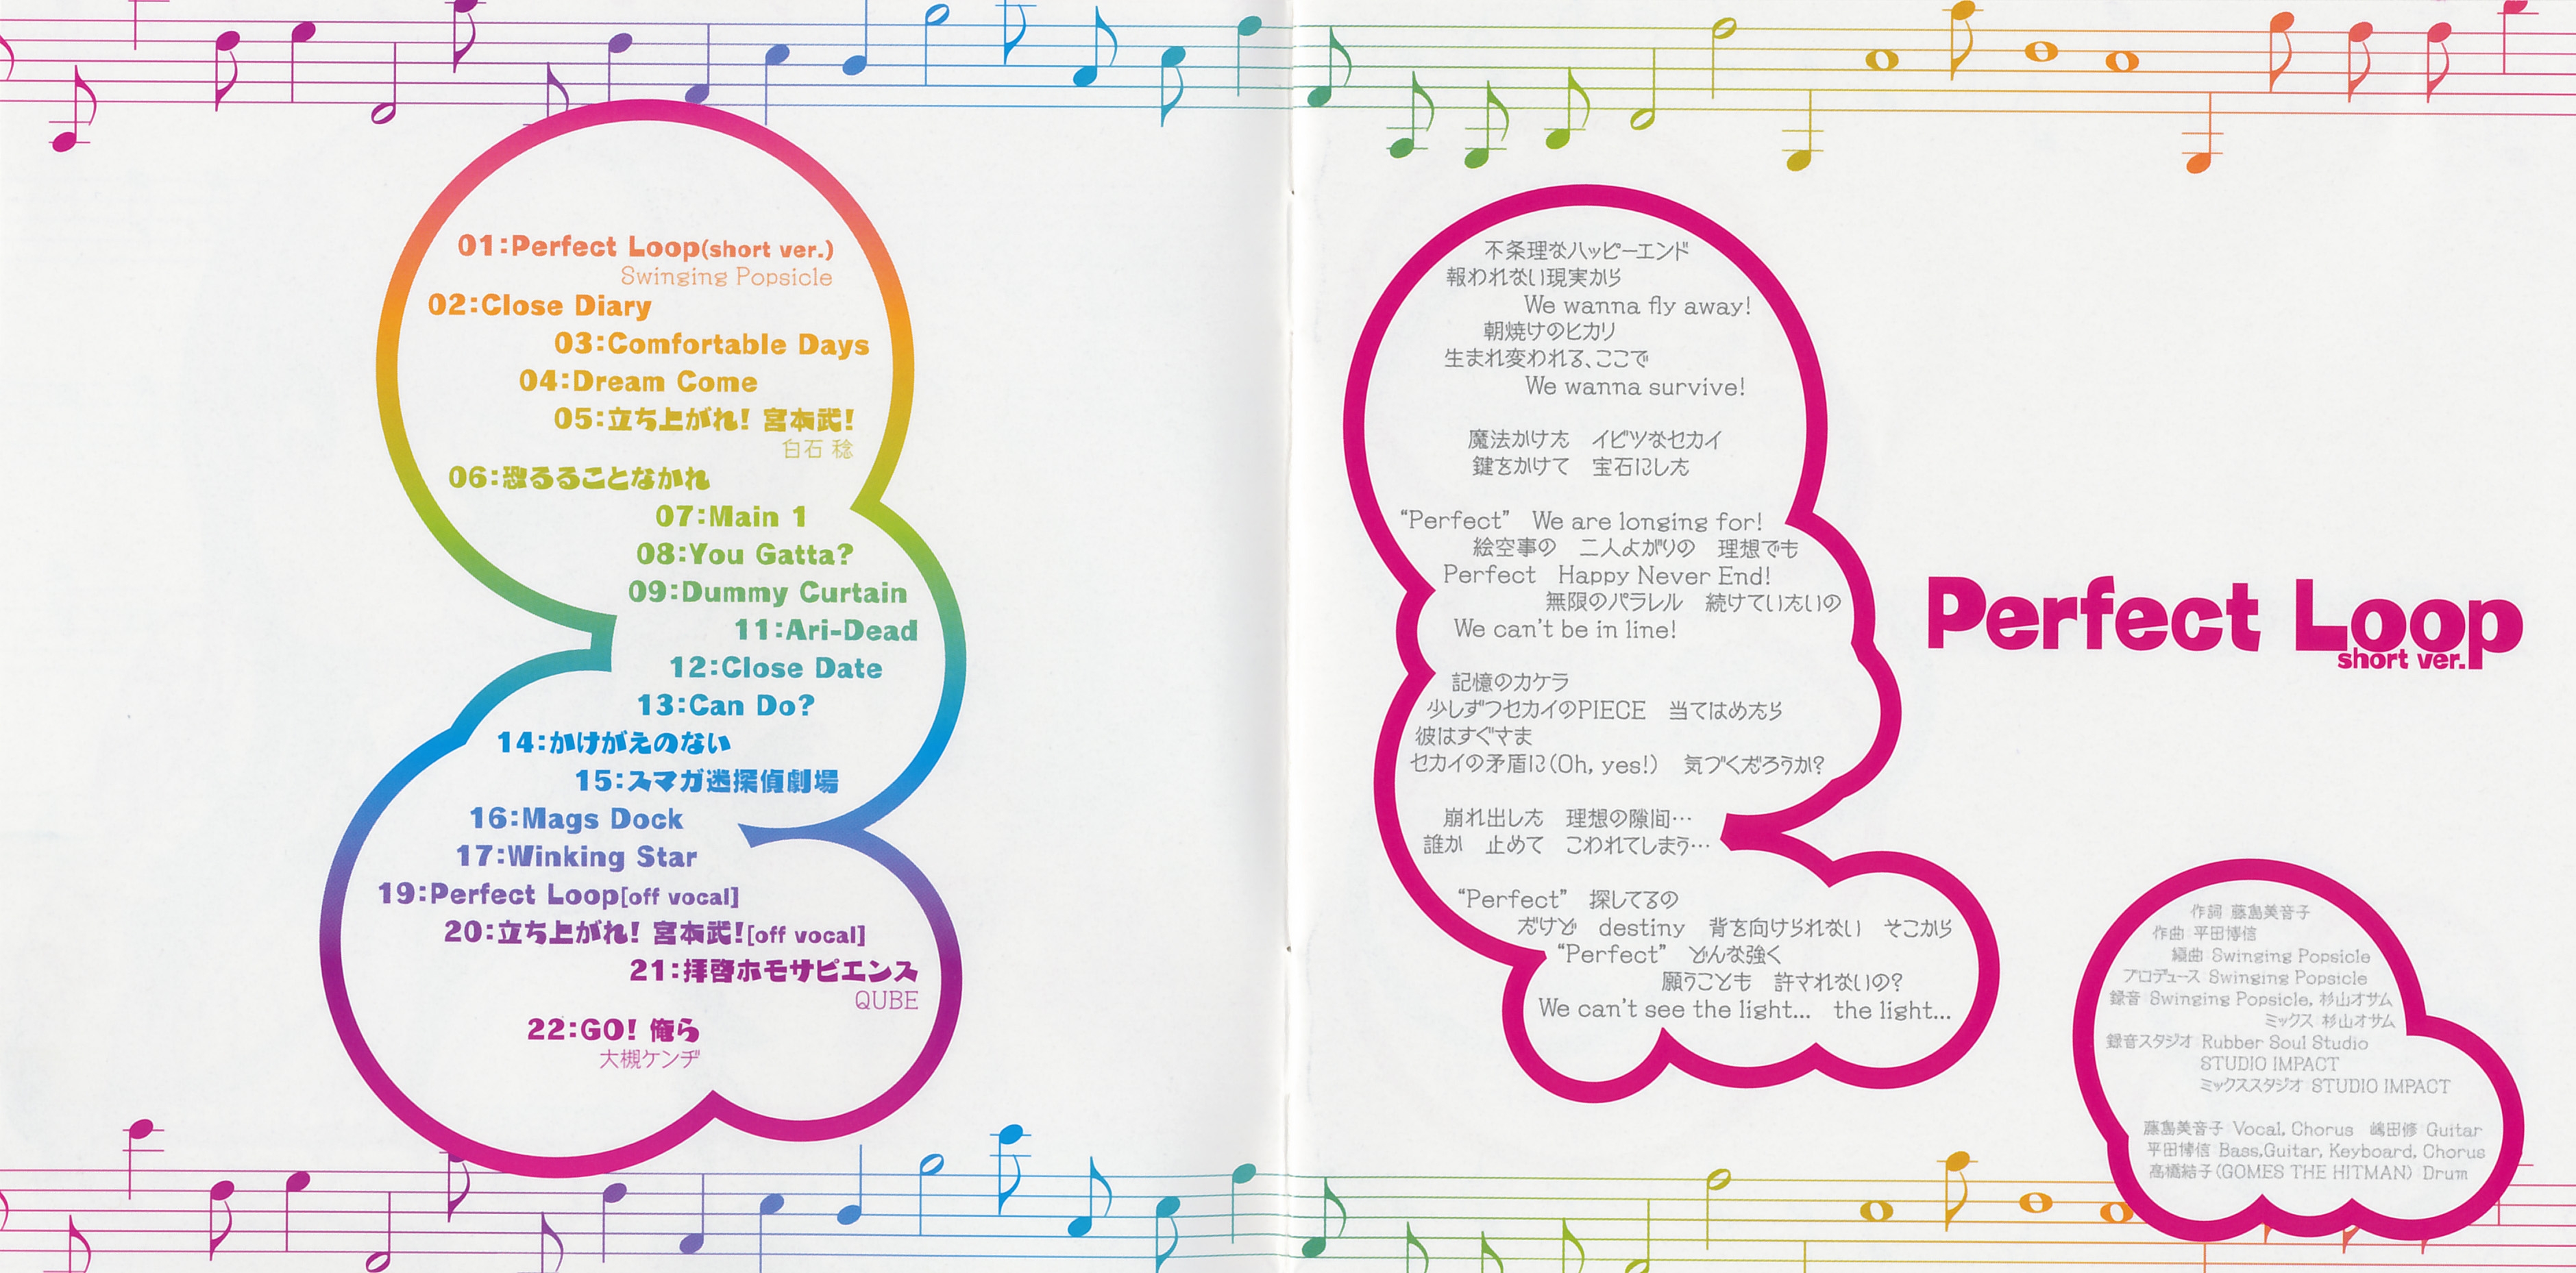 01:Perfect Loop(short ver.)
Swinging Popsicle
02:Close Diary
03:Comfortable Days
04:Dream Come
05:立ち上がれ! 宮本武!
白石 稔
06:恐るることなかれ
07:Main 1
08:You Gatta?
09:Dummy Curtain
11:Ari-Dead
12:Close Date
13:Can Do?
14:かけがえのない
15:スマガ迷探偵劇場
16:Mags Dock
17:Winking Star
19:Perfect Loop[off vocal]
20:立ち上がれ! 宮本武![off vocal]
21:拝啓ホモサピエンス
QUBE
22:GO! 俺ら
大槻ケンヂ
不条理なハッピーエンド
報われない現実から
We wanna fly away!
朝焼けのヒカリ
生まれ変われる、ここで
We wanna survive!
魔法かけた　イビツなセカイ
鍵をかけて　宝石にした
“Perfect”　We are longing for!
絵空事の　二人よがりの　理想でも
Perfect　Happy Never End!
無限のパラレル　続けていたいの
We can't be in line!
記憶のカケラ
少しずつセカイのPIECE　当てはめたら
彼はすぐさま
セカイの矛盾に(Oh, yes!)　気づくだろうか?
崩れ出した　理想の隙間…
誰か　止めて　こわれてしまう…
“Perfect”　探してるの
だけど　destiny　背を向けられない　そこから
“Perfect”　どんな強く
願うことも　許されないの?
We can't see the light...　the light...
Perfect Loop
short ver.
作詞 藤島美音子
作曲 平田博信
編曲 Swinging Popsicle
プロデュース Swinging Popsicle
録音 Swinging Popsicle, 杉山オサム
ミックス 杉山オサム
録音スタジオ Rubber Soul Studio
STUDIO IMPACT
ミックススタジオ STUDIO IMPACT
藤島美音子 Vocal, Chorus　嶋田修 Guitar
平田博信 Bass,Guitar, Keyboard, Chorus
高橋結子(GOMES THE HITMAN) Drum